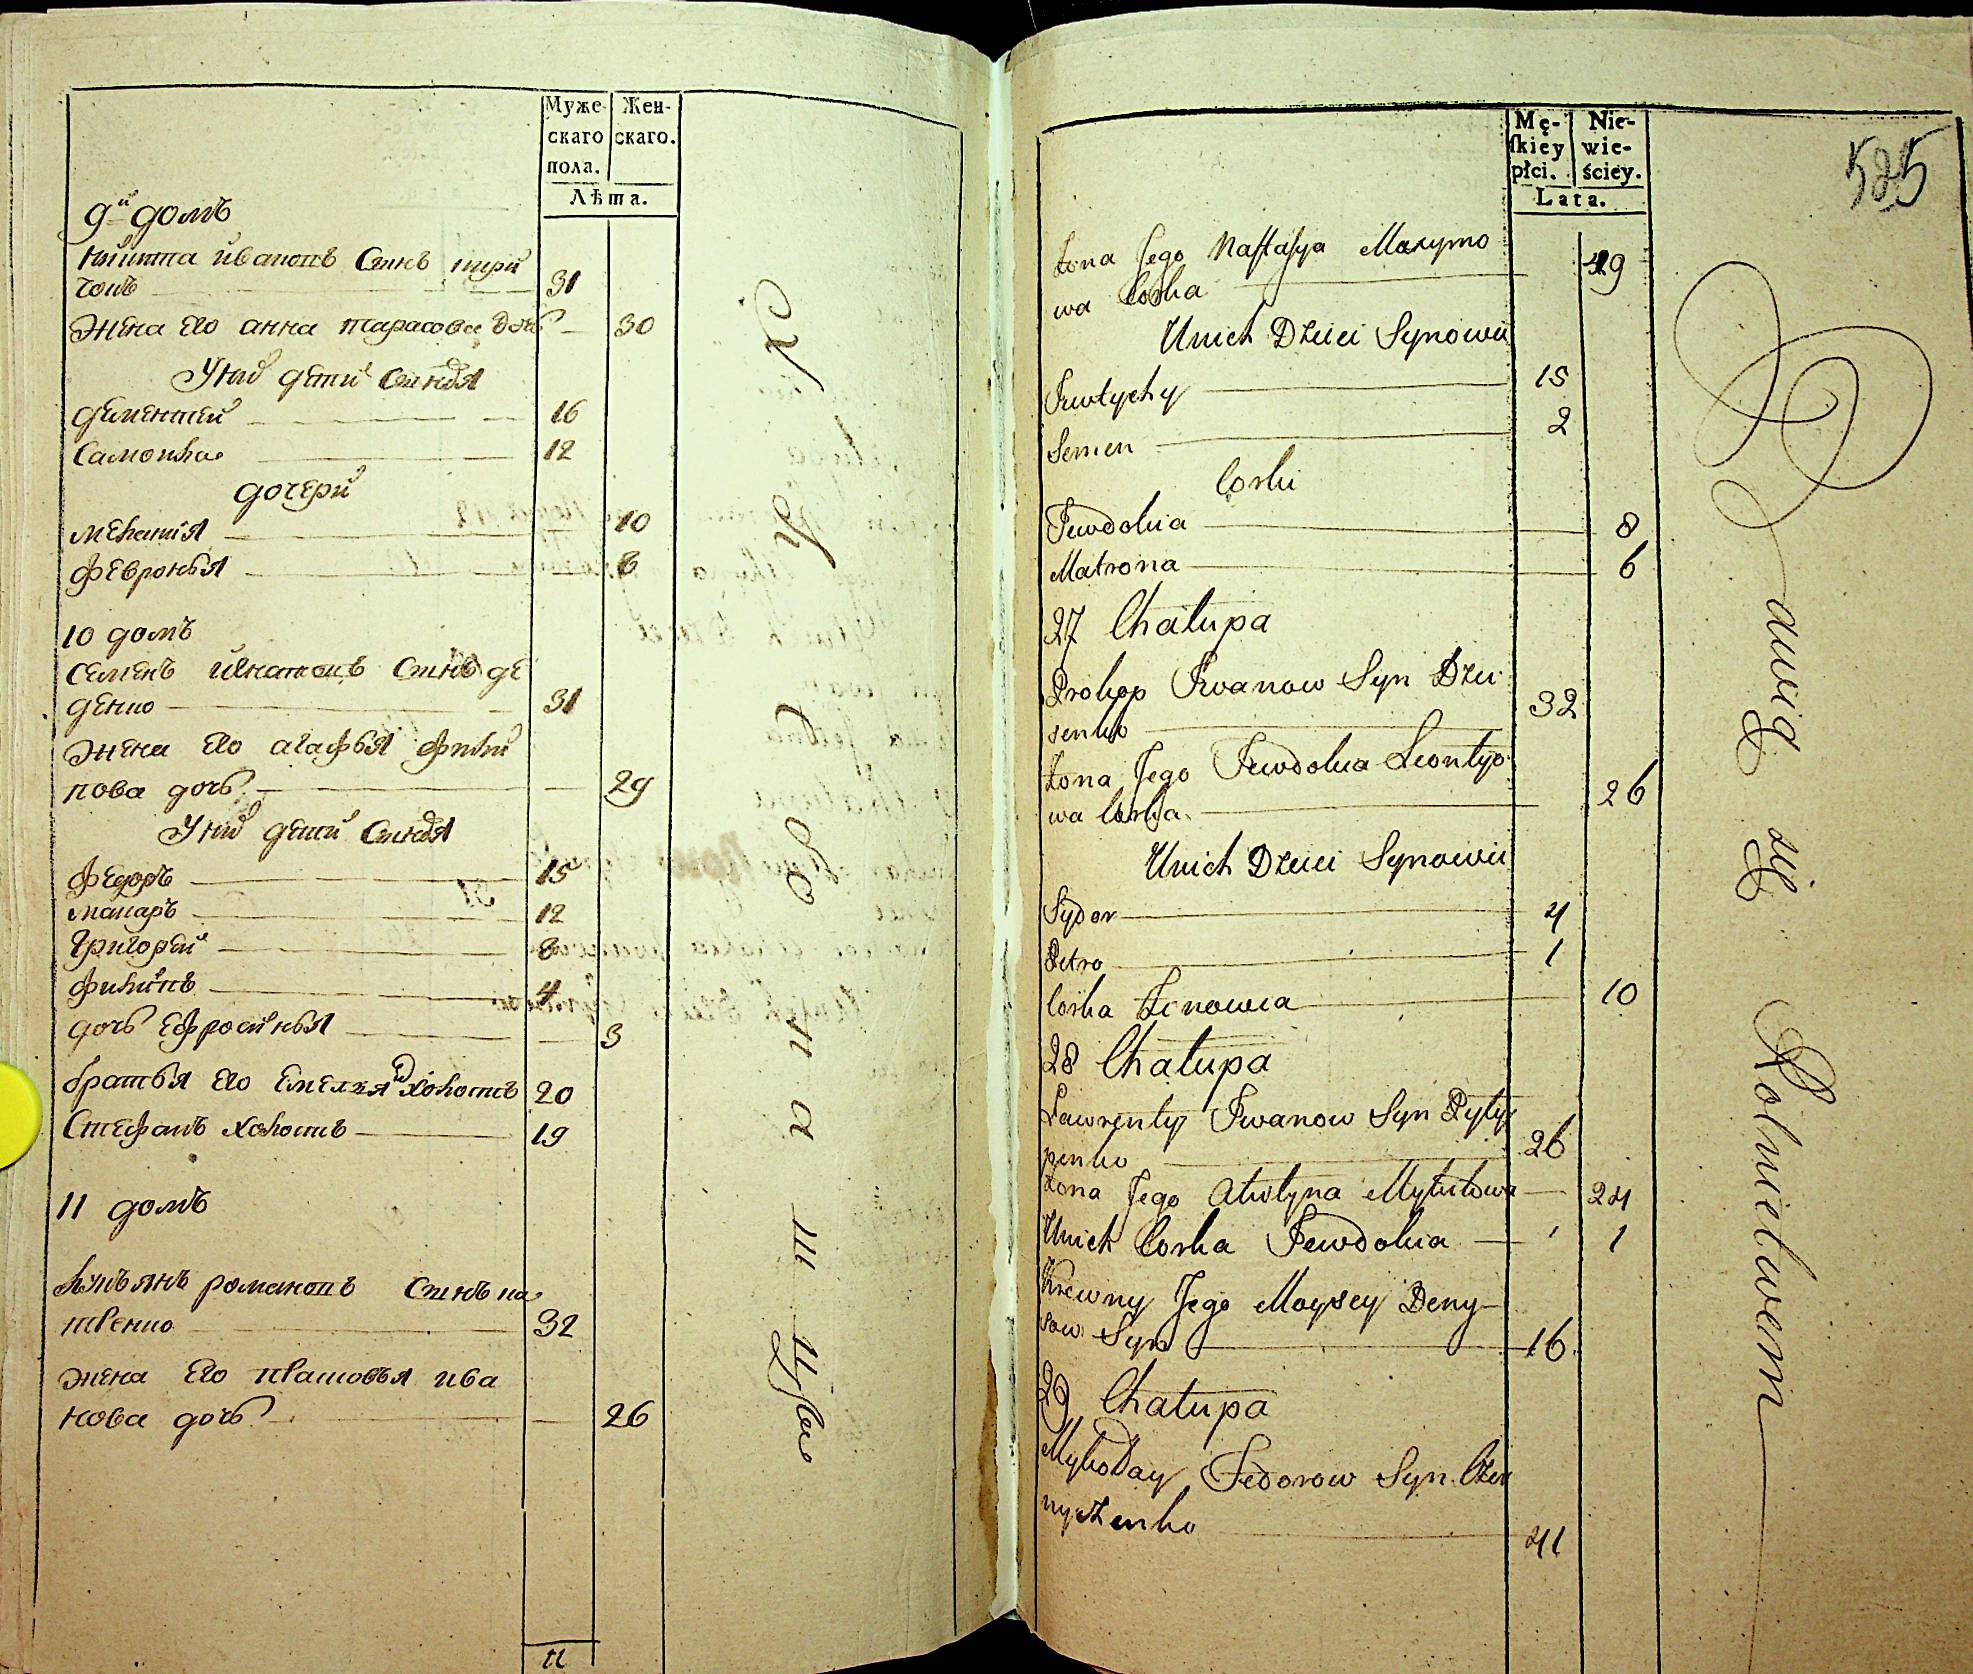 Муже-
скаго
пола.
Жен-
скаго.
Лѣта.
9й домъ
31
Жена его анна тарасова дочь 30
У нихъ дети
дементей 16
Самойла 12
дочери
меланія 10
февронья 8
10 домъ
семенъ сынъ де
денко 31
жена его агафья фили
пова дочь 29
У нихъ дети
федоръ 15
макаръ 12
григорей 8
филипъ 4
дочь ефросинья 3
братья его емельянъ холостъ 20
Стефанъ холостъ 19
11 домъ
лукьянъ романовъ сынъ ма
твенко 32
жена его ива
нова дочь 26
11
Mę-
ſkiey
płci.
Nie-
wie-
ściey.
Lata.
525
Żona Jego Nastasya Maxymo
wa Corka 49
Unich Dzieci Synowie
Iewtychy 15
Semen 2
Corki
Fewdokia 8
Matrona 6
27 Chałupa
Prokop Iwanow Syn Dzu
senko 32
Żona Jego Fewdokia Leontyo
wa Corka 26
Unich Dzieci Synowie
Sydor 4
Petro 1
Corka Zenowia 10
28 Chałupa
Lawrenty Iwanow Syn Pyly
penko 26
Żona Jego Akulyna Mykitowa 24
Unich Corka Fewdokia 1
Krewny Jego Moysey Deny-
sow Syn 16
29 Chałupa
Mykołay Fedorow Syn Czer
nyszenko 41
Bawią się Rolnictwem